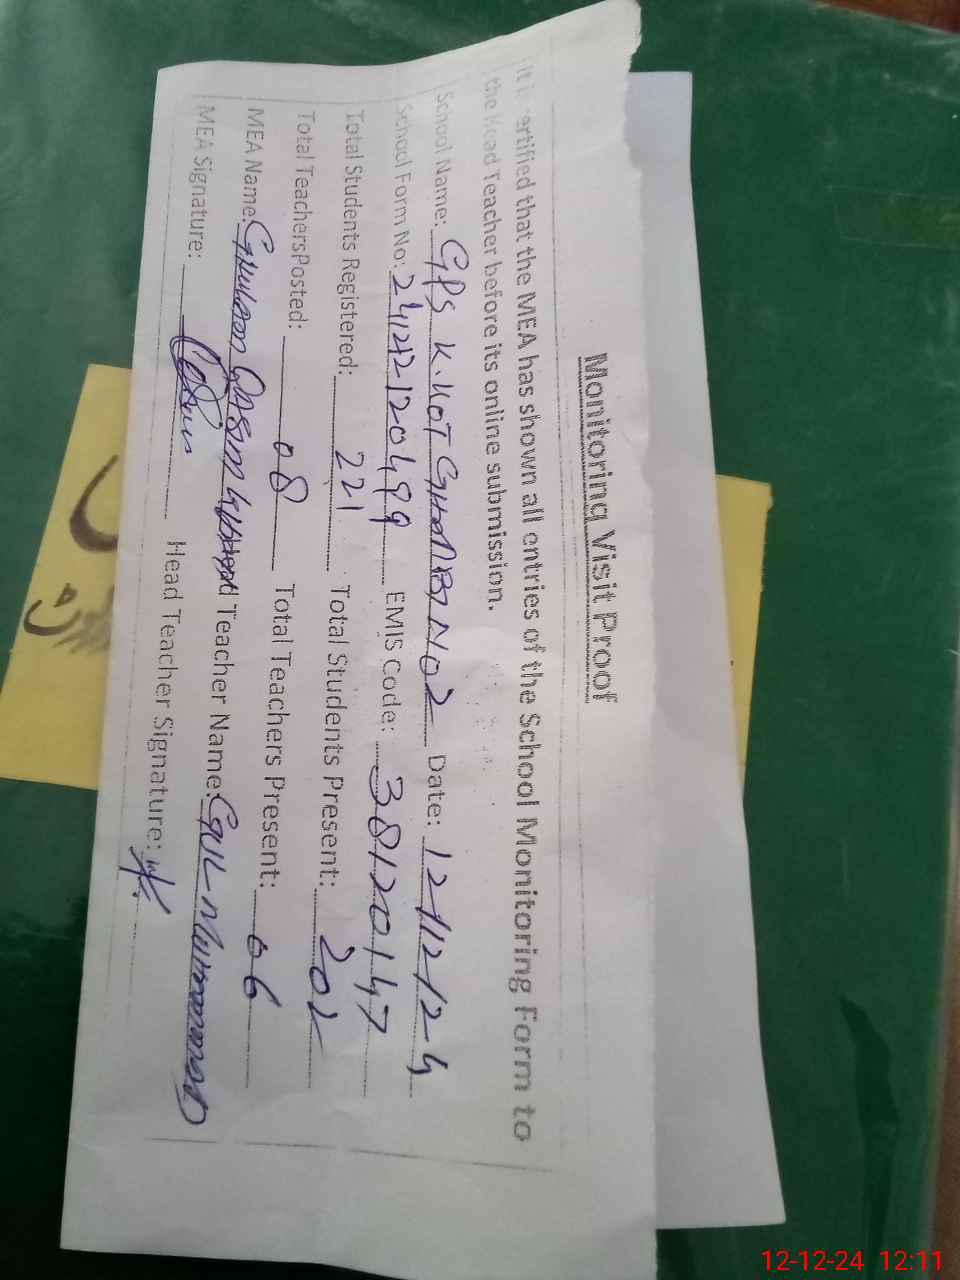 Monitoring Visit Proof
It is certified that the MEA has shown all entries of the School Monitoring Form to
the Head Teacher before its online submission.
School Name: GPS K.KOT GHARBI NO2 Date: 12/12/24
School Form No: 24121220499 EMIS Code: 38120147
Total Students Registered: 221 Total Students Present: 202
Total TeachersPosted: 08 Total Teachers Present: 06
MEA Name: Ghulam Qasim Head Teacher Name: GUL Muhammad
MEA Signature: Head Teacher Signature:
12-12-24 12:11